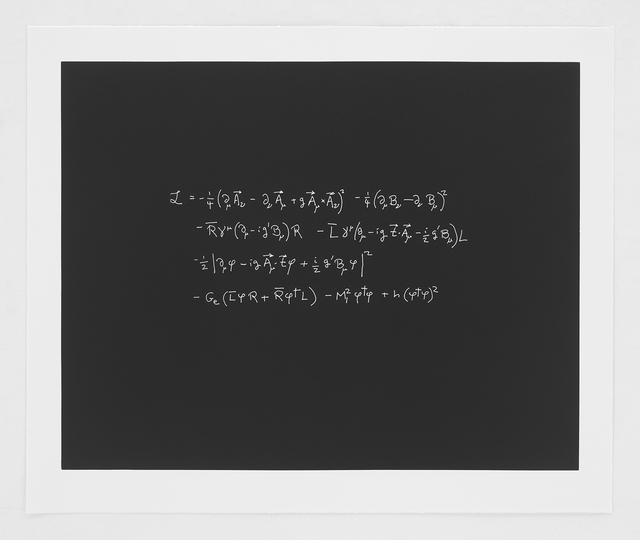 ℒ = -¼(∂_μ A⃗_ν - ∂_ν A⃗_μ + g A⃗_μ × A⃗_ν)² - ¼(∂_μ B_ν - ∂_ν B_μ)²
- R̅ γ^μ (∂_μ - ig' B_μ) R - L̅ γ^μ (∂_μ - ig t⃗·A⃗_μ - i/2 g' B_μ) L
- ½ |∂_μ φ - ig A⃗_μ·t⃗ φ + i/2 g' B_μ φ|²
- G_e (L̅ φ R + R̅ φ† L) - M₁² φ†φ + h (φ†φ)²